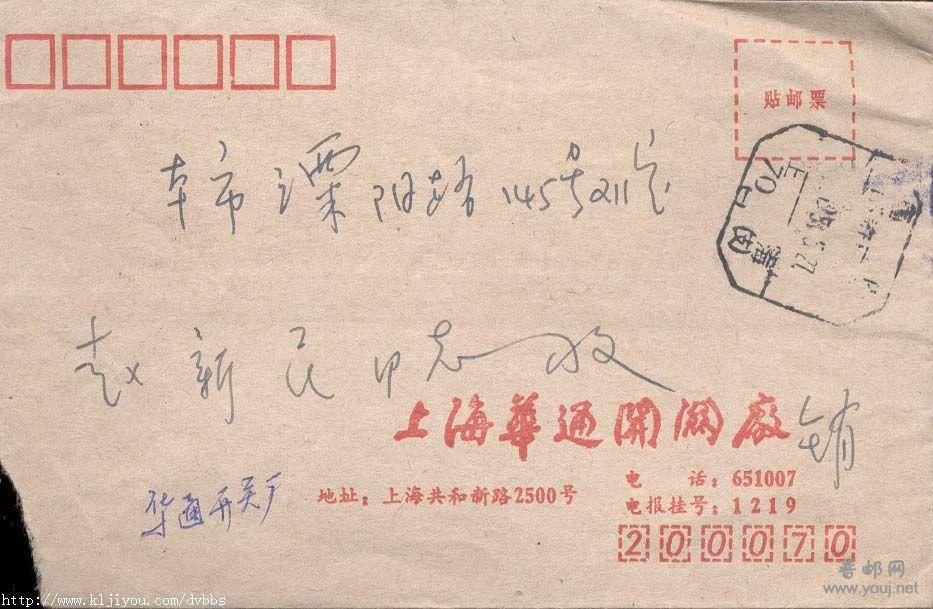 贴邮票
本市溧阳路145号211室
赵新民同志收
上海華通開関廠 销
华通开关厂
地址：上海共和新路2500号
电 话：651007
电报挂号：1219
200070
普邮网
www.youj.net
http://www.kljiyou.com/dvbbs